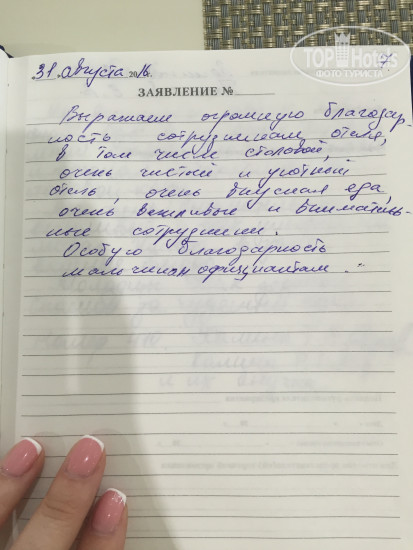 TOPHotels
ФОТО ТУРИСТА
31 августа 2016г.
ЗАЯВЛЕНИЕ №
Выражаем огромную благодар-
ность сотрудникам отеля,
в том числе столовой,
очень чистый и уютный
отель, очень вкусная еда,
очень вежливые и вниматель-
ные сотрудники.
Особую благодарность
мальчикам официантам.